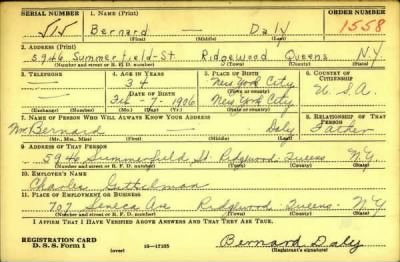 SERIAL NUMBER 1. NAME (Print) ORDER NUMBER
515 Bernard — Daly 1558
(First) (Middle) (Last)
2. ADDRESS (Print)
5946 Summerfield-St Ridgewood Queens NY
(Number and street or R. F. D. number) (Town) (County) (State)
3. TELEPHONE 4. AGE IN YEARS 5. PLACE OF BIRTH 6. COUNTRY OF CITIZENSHIP
34 New York City
DATE OF BIRTH (Town or county)
Feb-7-1906 New York City U.S.A.
(Exchange) (Number) (Mo.) (Day) (Yr.) (State or country)
7. NAME OF PERSON WHO WILL ALWAYS KNOW YOUR ADDRESS 8. RELATIONSHIP OF THAT PERSON
Mr Bernard Daly Father
(Mr., Mrs., Miss) (First) (Middle) (Last)
9. ADDRESS OF THAT PERSON
5946 Summerfield St. Ridgewood Queens N.Y.
(Number and street or R. F. D. number) (Town) (County) (State)
10. EMPLOYER'S NAME
Charles
11. PLACE OF EMPLOYMENT OR BUSINESS
707 Seneca Ave Ridgewood Queens - NY
(Number and street or R. F. D. number) (Town) (County) (State)
I AFFIRM THAT I HAVE VERIFIED ABOVE ANSWERS AND THAT THEY ARE TRUE.
REGISTRATION CARD
D. S. S. Form 1 (over) 16—17105 Bernard Daly
(Registrant's signature)